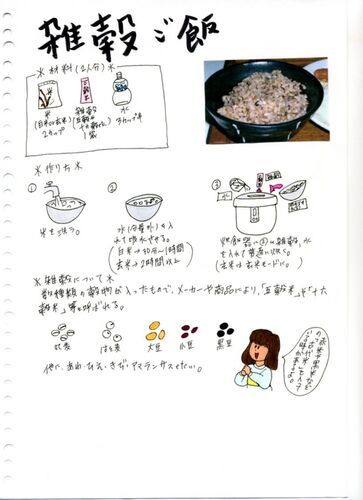 雑穀ご飯
※材料(2人分)※
米
(白米or玄米)
2カップ
雑穀
1袋
水
3カップ半
※作り方※
①
米を洗う。
②
水(分量外)を入
れて吸水させる。
(白米→30分〜1時間
玄米→2時間以上)
③
炊飯器に②と雑穀、水
を入れて普通に炊く。
(玄米は玄米モードに。)
※雑穀について※
数種類の穀物が入ったもので、メーカーや商品により、「五穀米」や「十六
米」等と呼ばれる。
はと麦
大豆
小豆
黒豆
他に、あわ・ひえ・きび・アマランサスetc.